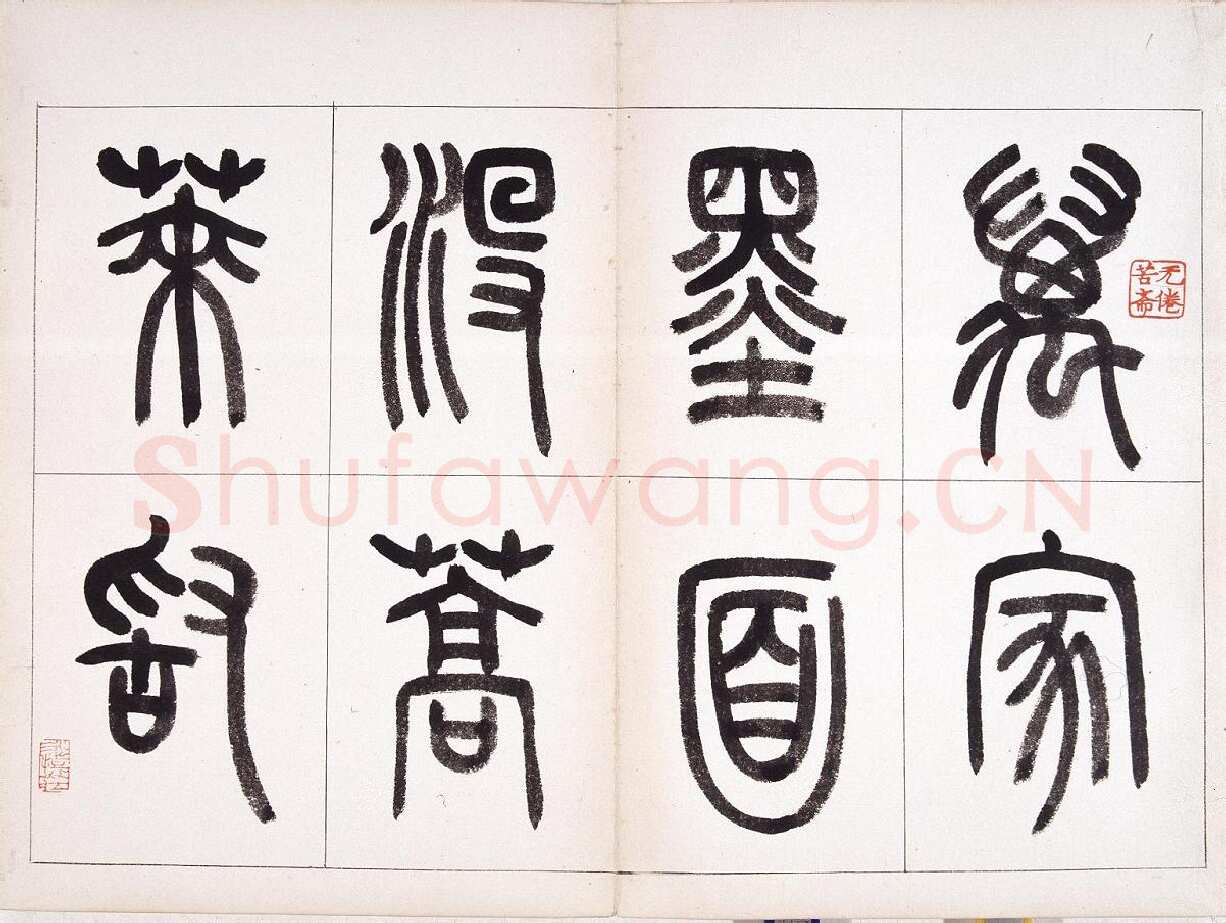 萬家
墨面
沒蒿
萊敢
无倦
苦斋
Shufawang.CN